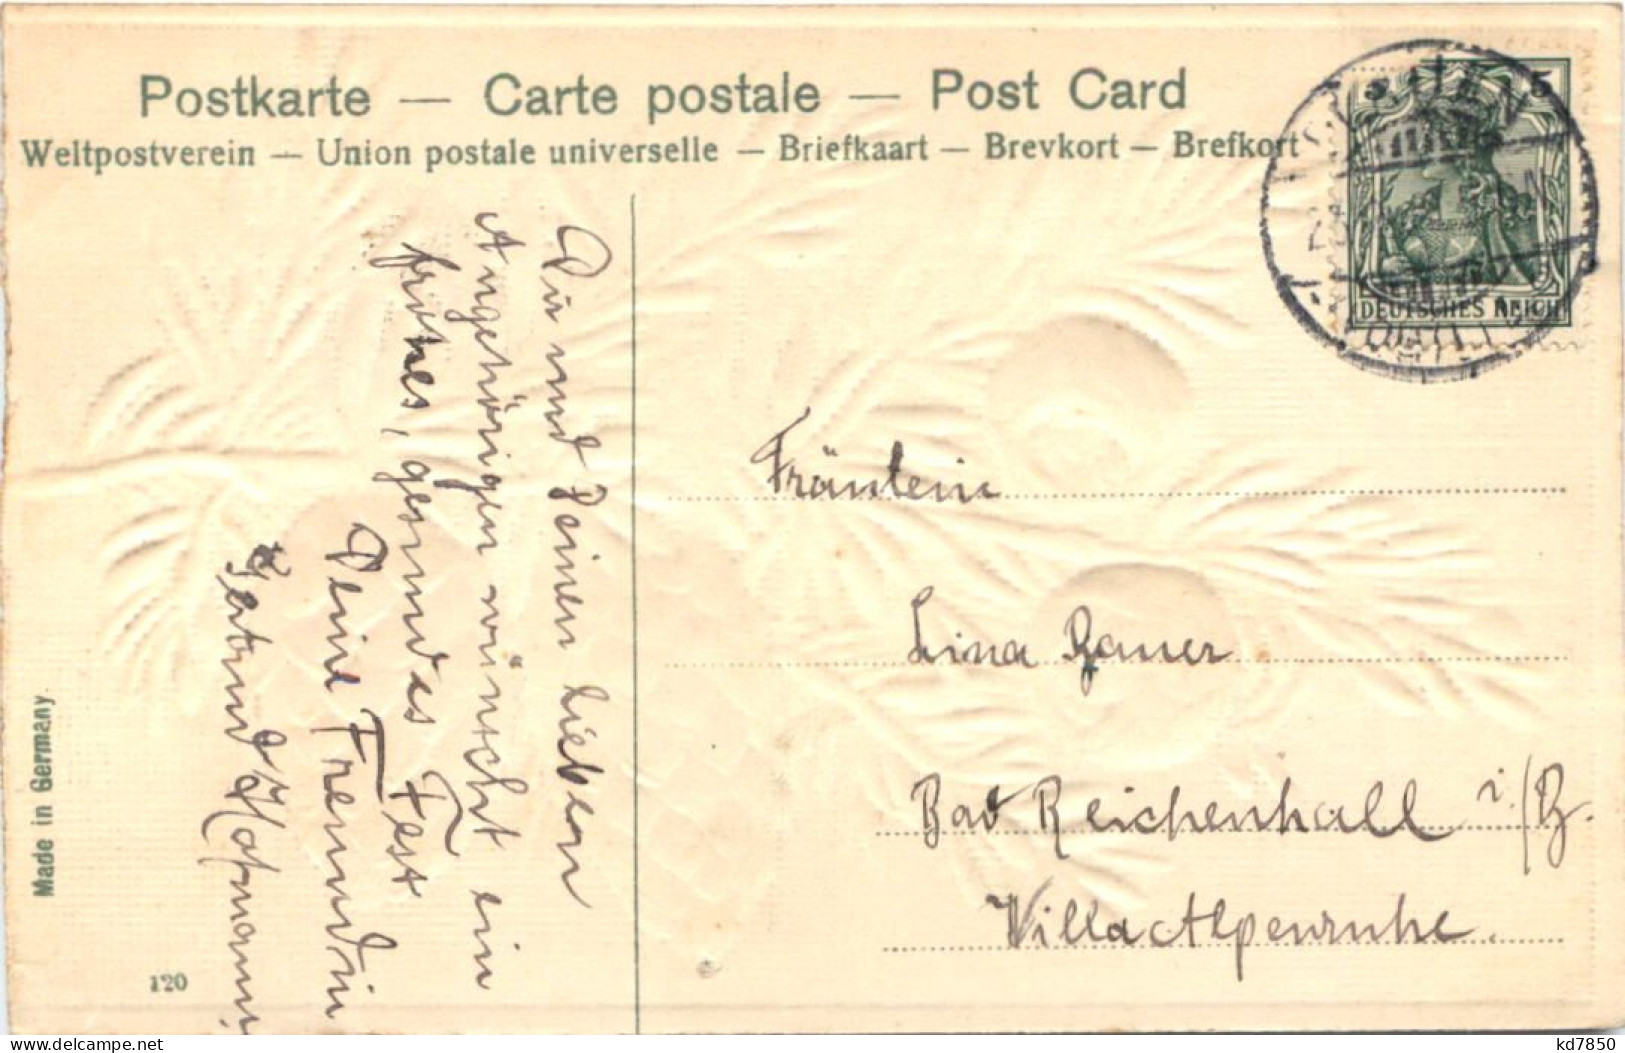 Postkarte — Carte postale — Post Card
Weltpostverein — Union postale universelle — Briefkaart — Brevkort — Brefkort
5
DEUTSCHES REICH
Dir und Deinen lieben
Angehörigen wünscht ein
frohes, gesundes Fest
Deine Freundin
Gertrud Hofmann
Fräulein
Lina
Bad Reichenhall i/B.
Villa Alpenruhe.
Made in Germany
120
delcampe.net
kd7850